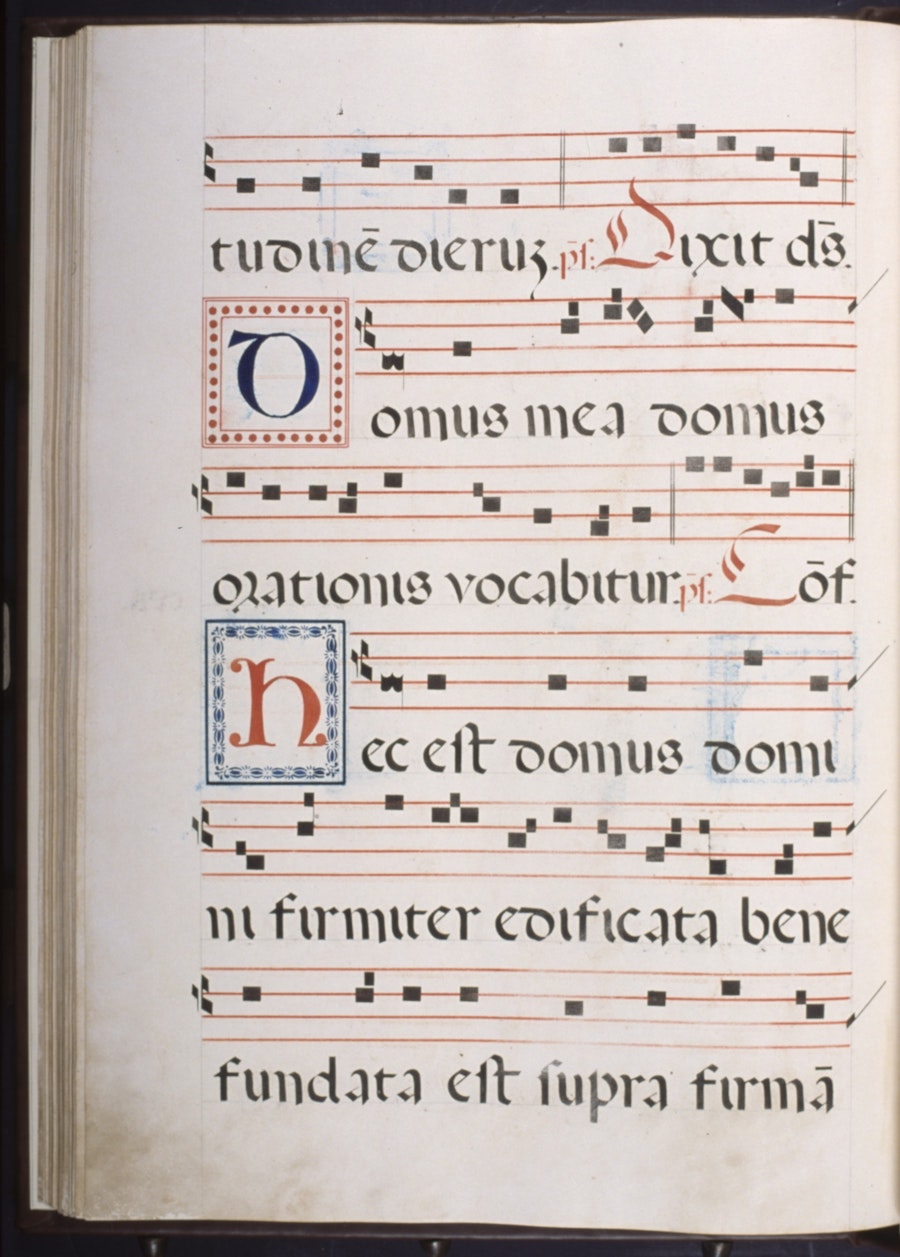 tudinē dieruꝫ. ps̄. Dixit dn̄s.
Domus mea domus
orationis vocabitur. ps̄. Cōf.
hec est domus domi
ni firmiter edificata bene
fundata est supra firmā